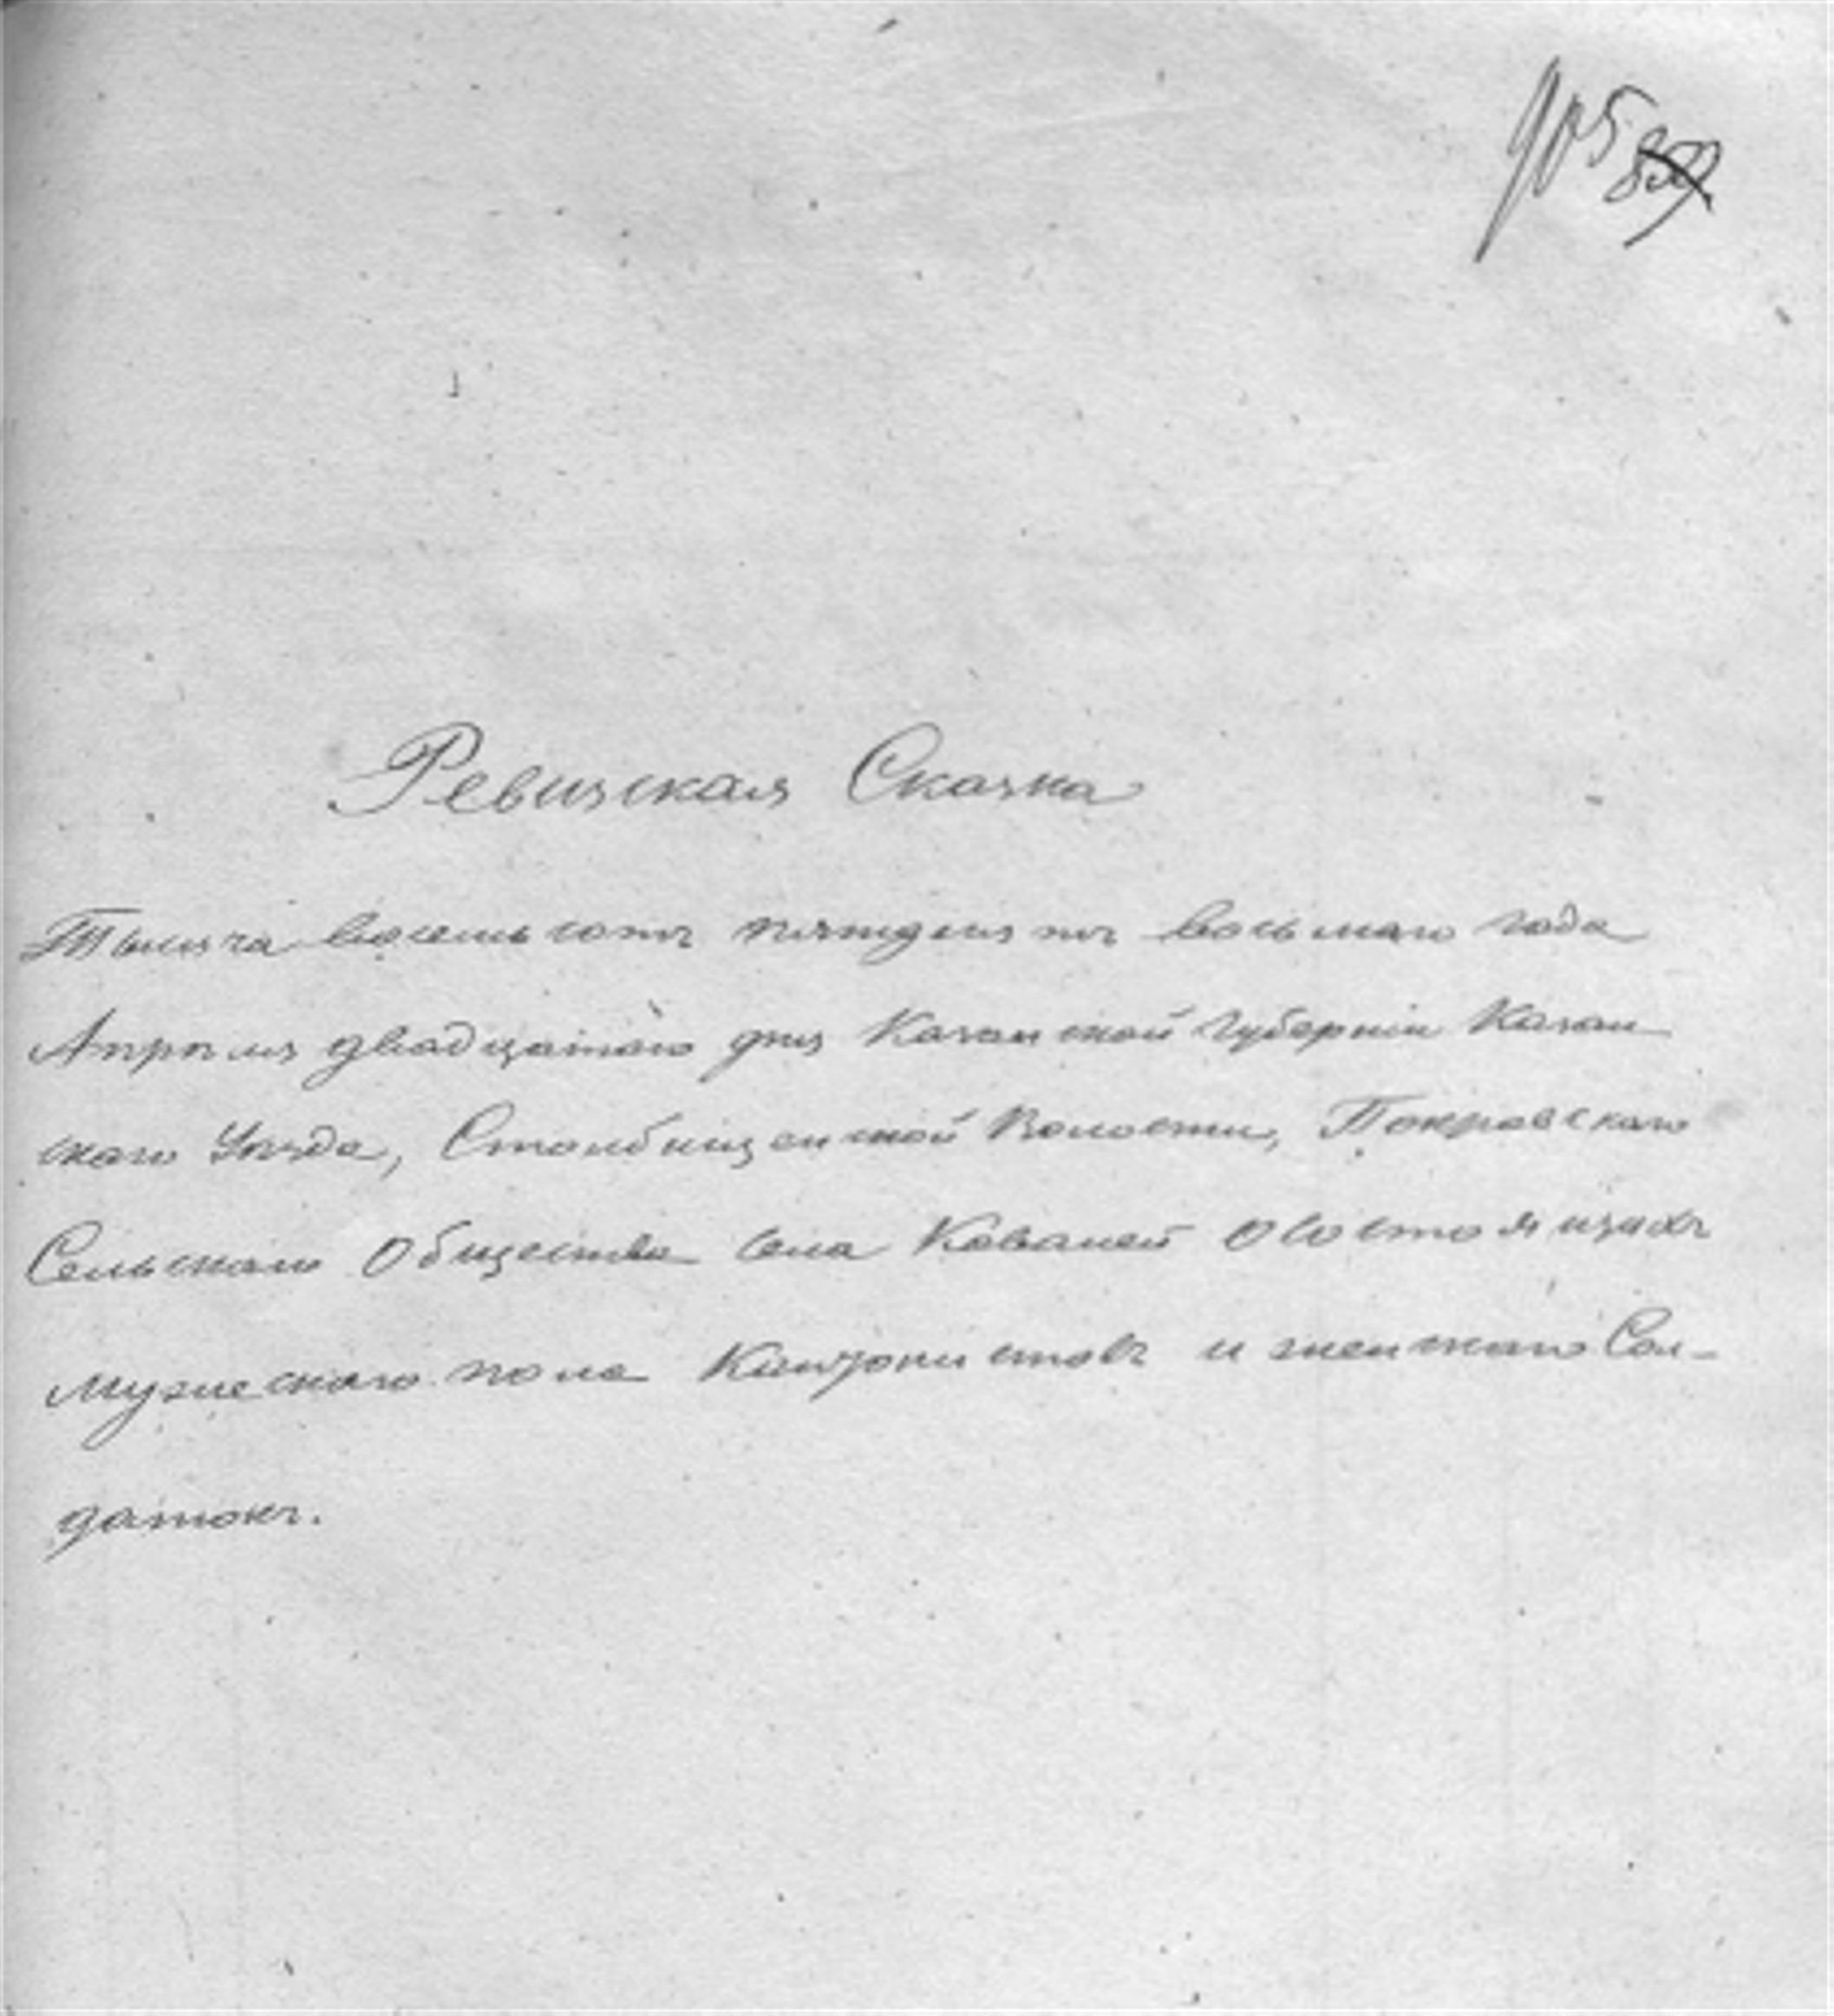 905
Ревизская Сказка
Тысяча восемь сотъ пятидесятъ восьмаго года
Апрѣля двадцатаго дня Казанской Губерніи Казан
скаго Уѣзда, Столбищенской Волости, Покравскаго
Сельскаго Общества села Кавалей о состоящихъ
Мужескаго пола Кантонистовъ и женскаго Сол-
датокъ.